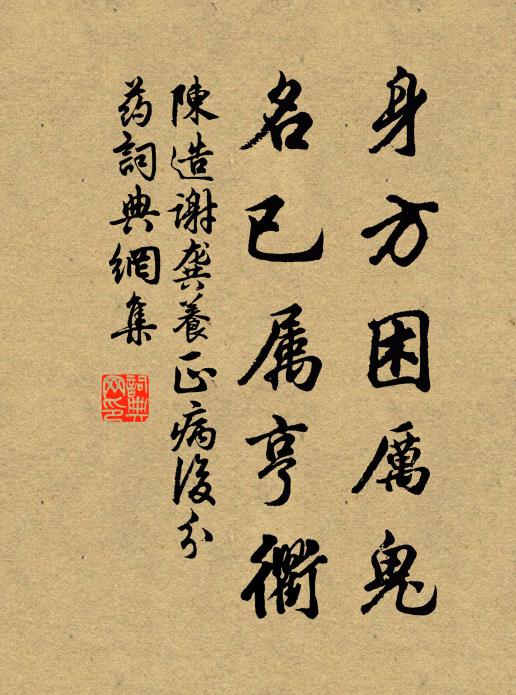 身方困厲鬼
名已属亨衢
陳造謝龔養正病後分
药詞典網集
詞典網印